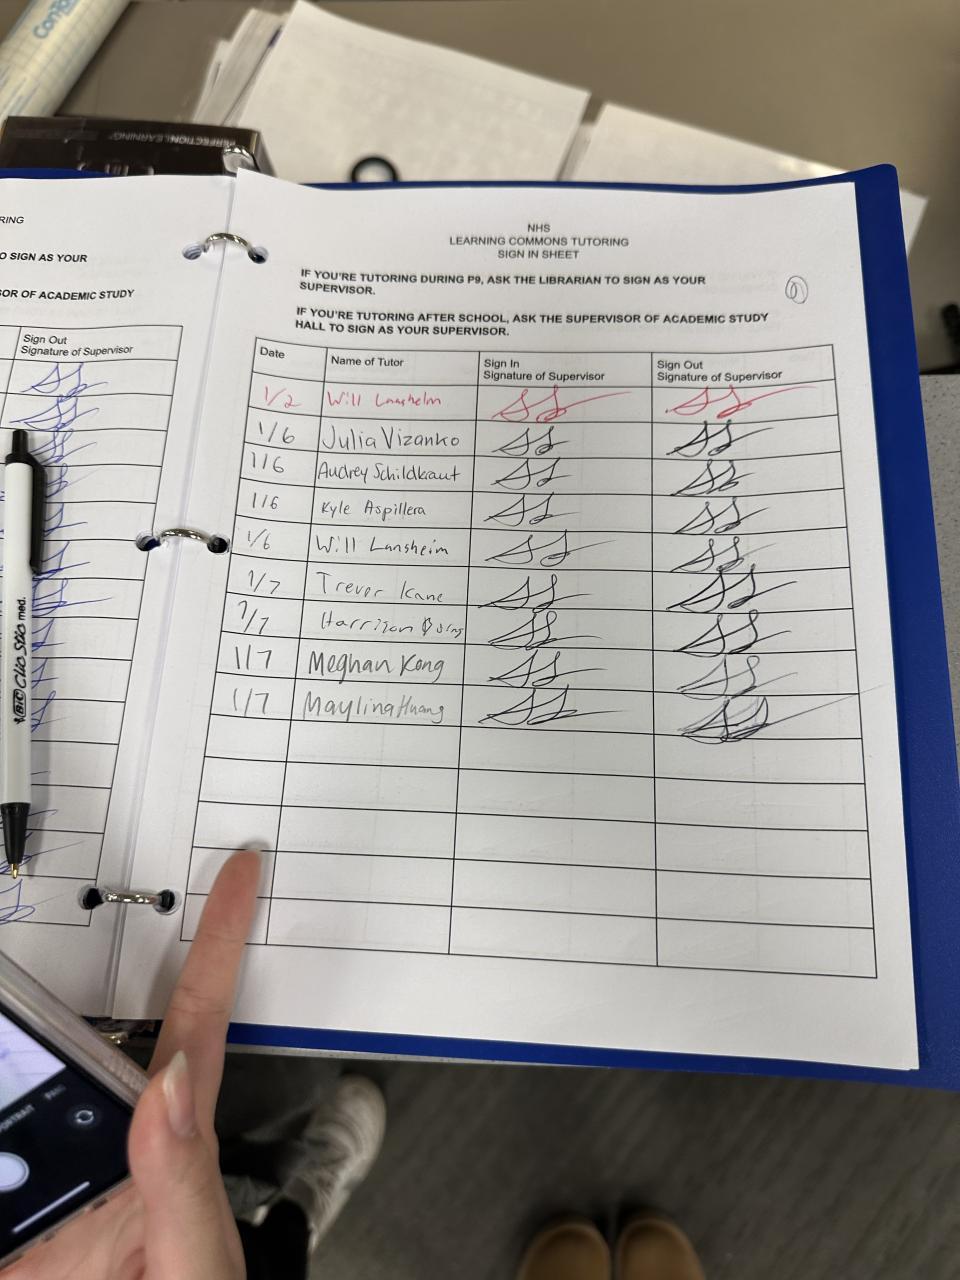 Con
PERFECTION LEARNING
RING
O SIGN AS YOUR
SOR OF ACADEMIC STUDY
Sign Out
Signature of Supervisor
NHS
LEARNING COMMONS TUTORING
SIGN IN SHEET
IF YOU'RE TUTORING DURING P9, ASK THE LIBRARIAN TO SIGN AS YOUR
SUPERVISOR.
IF YOU'RE TUTORING AFTER SCHOOL, ASK THE SUPERVISOR OF ACADEMIC STUDY
HALL TO SIGN AS YOUR SUPERVISOR.
Date Name of Tutor Sign In Signature of Supervisor Sign Out Signature of Supervisor
1/2 Will Lansheim
1/6 Julia Vizanko
1/6 Audrey Schildkraut
1/6 Kyle Aspillera
1/6 Will Lansheim
1/7 Trevor Kane
1/7 Harrison
1/7 Meghan Kong
1/7 Maylina Huang
BIC Clic Stic med.
PORTRAIT PANO